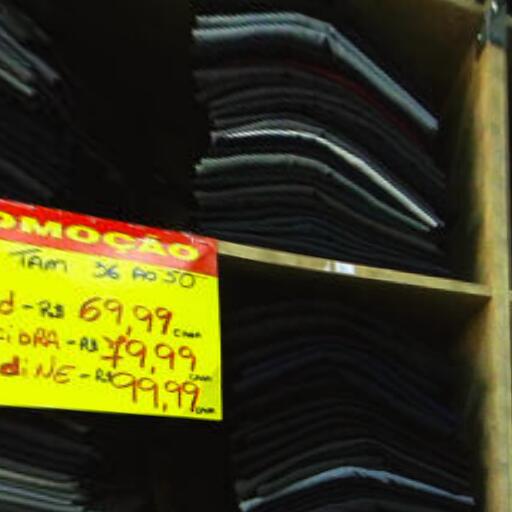 OMOÇÃO
TAM 36 AO 50
d - R$ 69,99 CADA
CIDRA - R$ 79,99 CADA
diNE - R$ 99,99 CADA